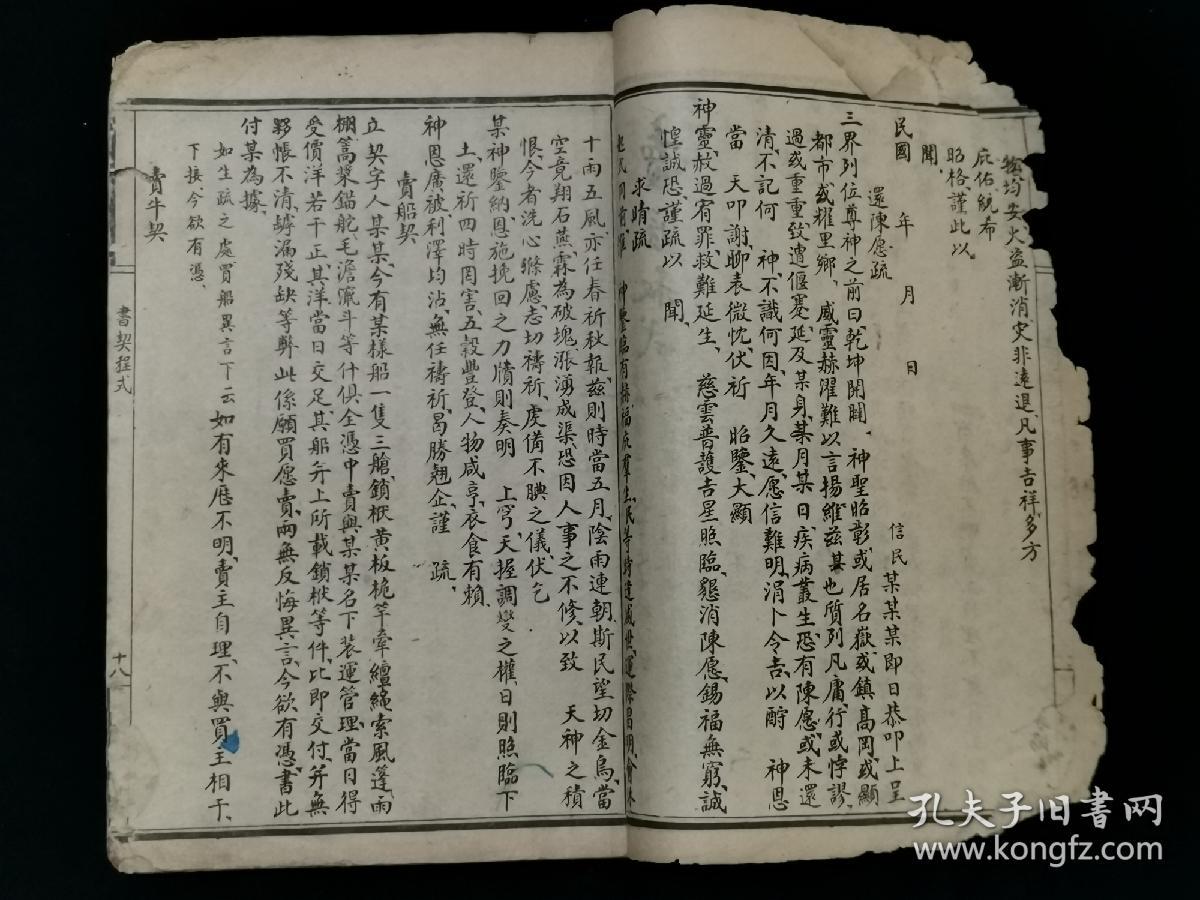 物均安火盜漸消災非遠退凡事吉祥多方
庇佑統希
昭格謹此以
聞
民國 年 月 日
還陳愿疏
信民某某某即日恭叩上呈
三界列位尊神之前曰乾坤開闢、神聖昭彰或居名嶽或鎮高岡或顯
都市或耀里鄉、威靈赫濯難以言揚維茲某也質列凡庸行或悖謬、
過或重重致遭偃蹇延及某身某月某日疾病叢生恐有陳愿或未還
清不記何 神不識何因年月久遠愿信難明涓卜令吉以酧 神恩
當 天叩謝聊表微忱伏祈 昭鑒大顯
神靈赦過宥罪救難延生、 慈雲普護吉星照臨懇消陳愿錫福無窮誠
惶誠恐謹疏以 聞
求晴疏
十雨五風亦任春祈秋報茲則時當五月陰雨連朝斯民望切金烏當
空竟翔石燕霖為破塊漲湧成渠恐因人事之不修以致 天神之積
恨今者洗心滌慮志切禱祈虔備不腆之儀伏乞
某神鑒納恩施挽回之力牘則奏明 上穹天握調燮之權日則照臨下
土還祈四時罔害五穀豐登人物咸亨衣食有賴
神恩廣被利澤均沾無任禱祈曷勝翹企謹 疏
賣船契
立契字人某某今有某樣船一隻三艙鎖栿黃板桅竿牽繵繩索風篷雨
棚篙槳錨舵毛澹瀛斗等什俱全憑中賣與某某名下裝運管理當日得
受價洋若干正其洋當日交足其船并上所載鎖栿等件比即交付并無
夥帳不清罅漏殘缺等弊此係願買愿賣兩無反悔異言今欲有憑書此
付某為據
如生疏之處買船異言下云如有來歷不明賣主自理不與買主相干、
下接今欲有憑
賣牛契
書契程式
十八
孔夫子旧书网
www.kongfz.com